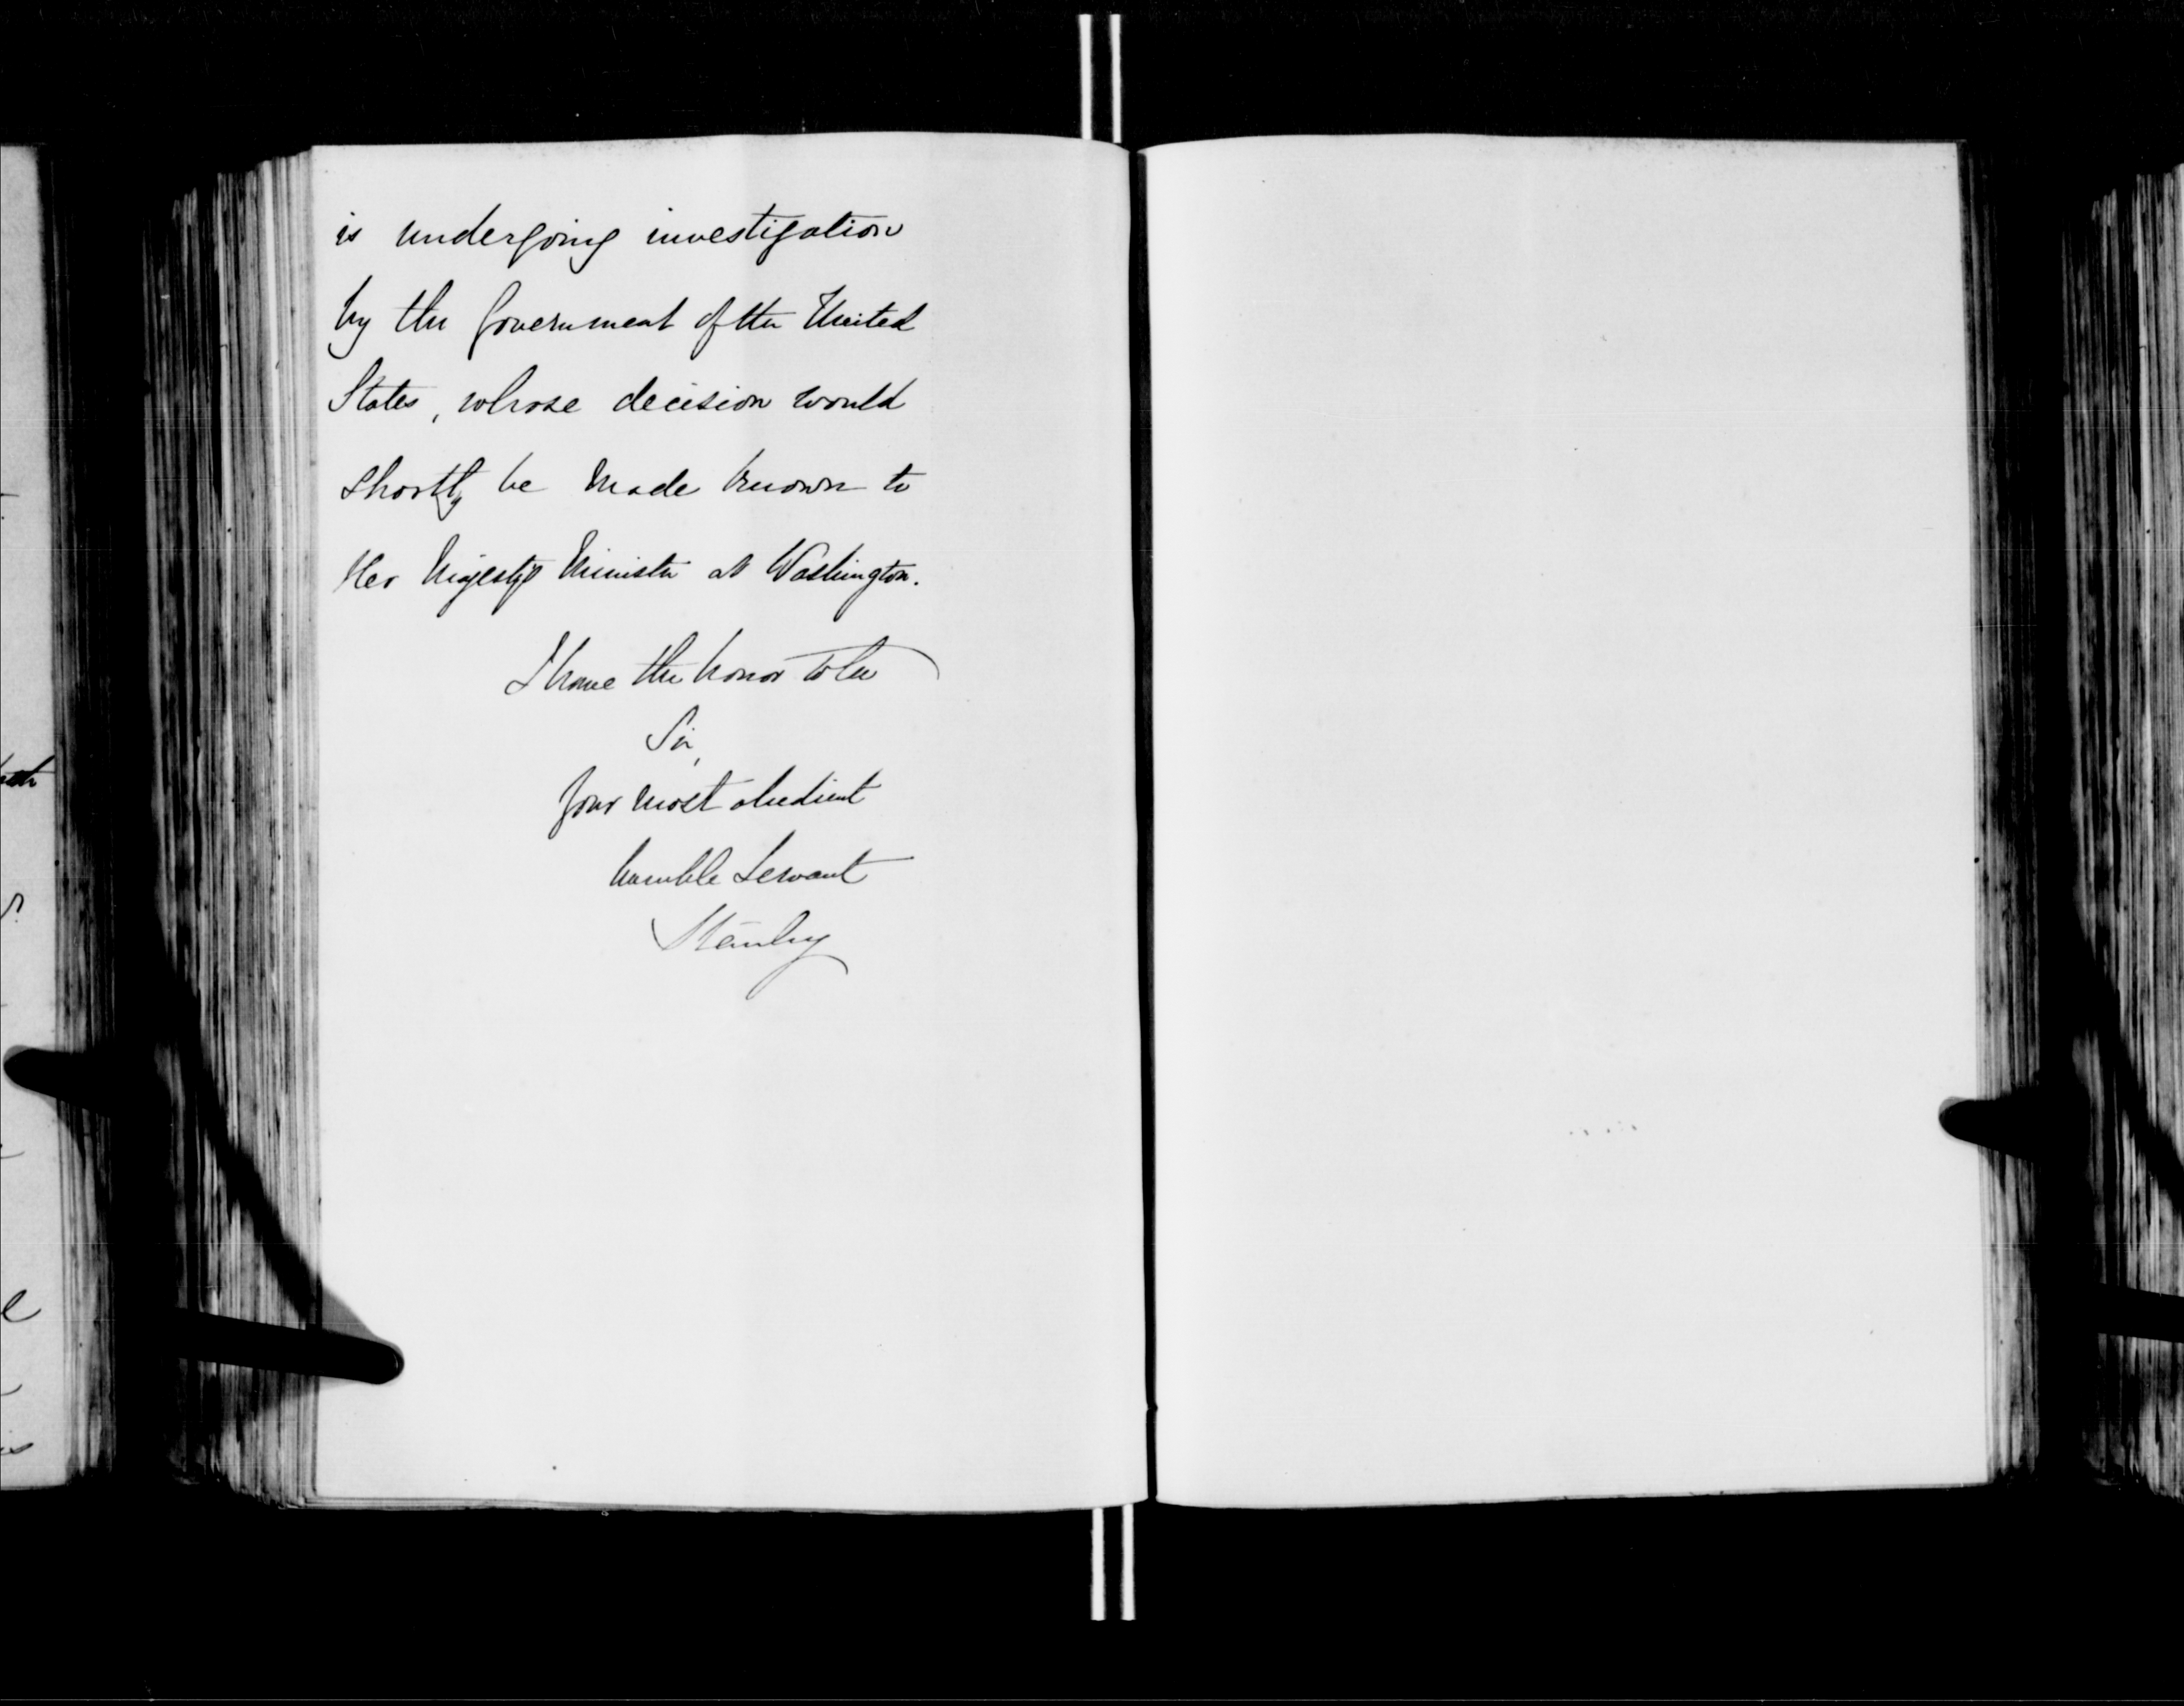 is undergoing investigation
by the Government of the United
States, whose decision would
shortly be made known to
Her Majesty's Minister at Washington.
I have the honor to be
Sir,
Your most obedient
humble Servant
Stanley